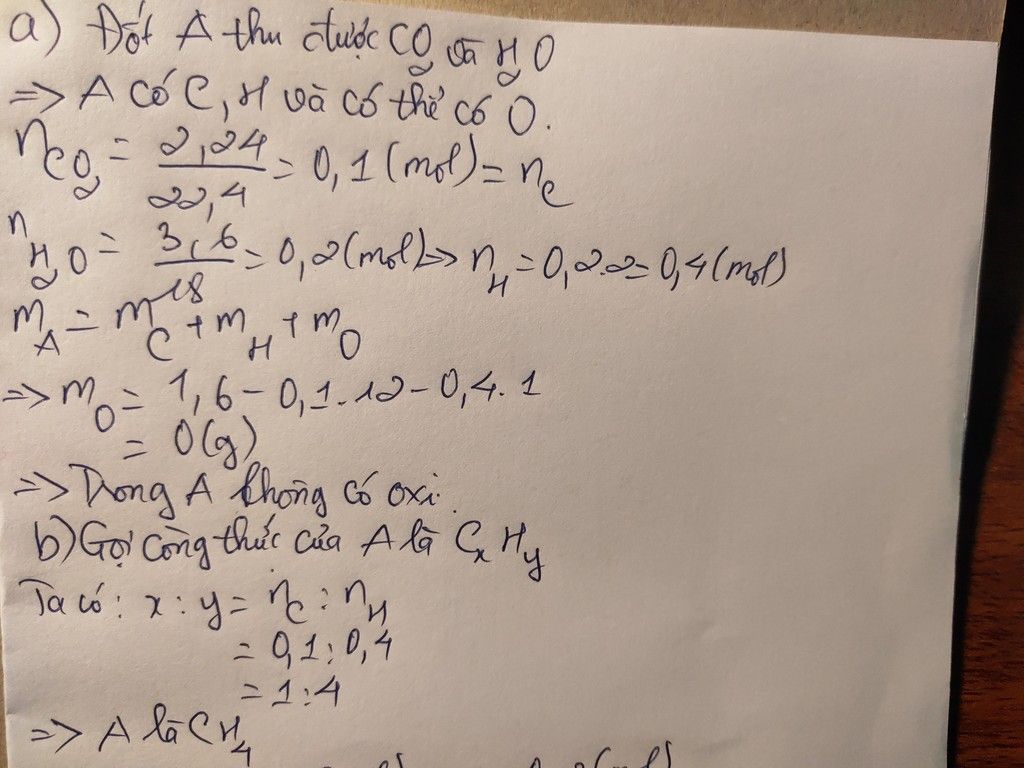 a) Đốt A thu được CO₂ và H₂O
=> A có C, H và có thể có O.
n_CO₂ = 2,24/22,4 = 0,1 (mol) = n_C
n_H₂O = 3,6/18 = 0,2 (mol) => n_H = 0,2.2 = 0,4 (mol)
m_A = m_C + m_H + m_O
=> m_O = 1,6 - 0,1.12 - 0,4.1
= 0(g)
=> Trong A không có oxi.
b) Gọi công thức của A là CxHy
Ta có: x : y = n_C : n_H
= 0,1 : 0,4
= 1 : 4
=> A là CH₄